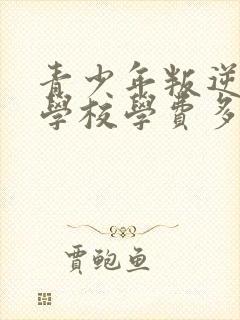 青少年叛逆
學校學費多
賈鲍魚